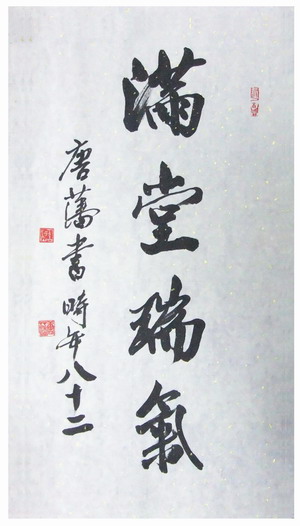 滿堂瑞氣
唐藩書時年八十二